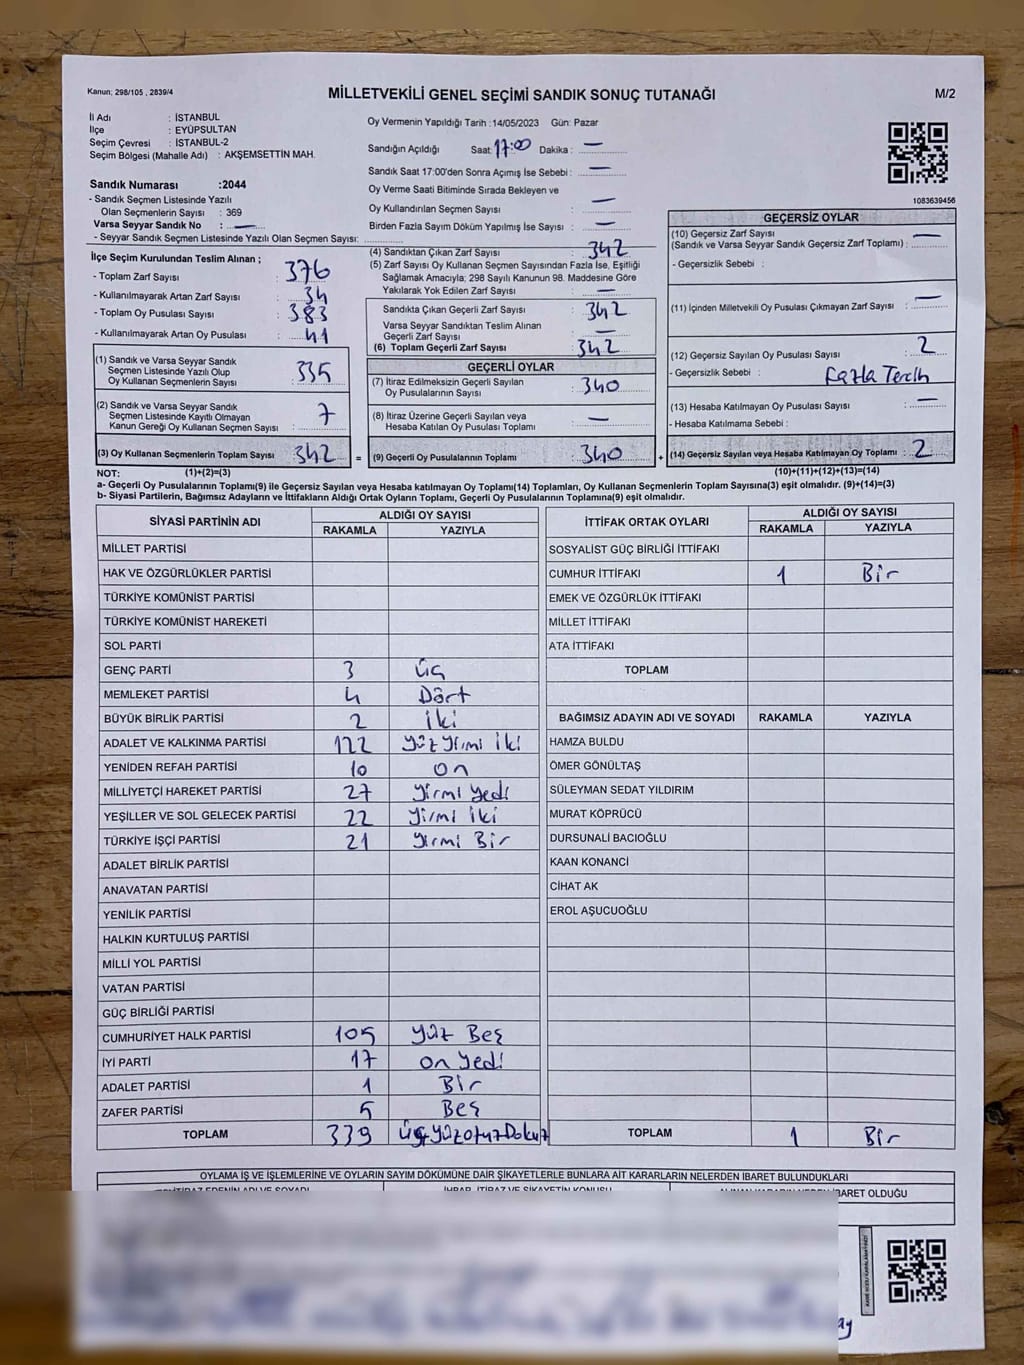 Kanun; 298/105 , 2839/4
MİLLETVEKİLİ GENEL SEÇİMİ SANDIK SONUÇ TUTANAĞI
M/2
İl Adı : İSTANBUL
İlçe : EYÜPSULTAN
Seçim Çevresi : İSTANBUL-2
Seçim Bölgesi (Mahalle Adı) : AKŞEMSETTİN MAH.
Sandık Numarası :2044
- Sandık Seçmen Listesinde Yazılı
Olan Seçmenlerin Sayısı : 369
Varsa Seyyar Sandık No : —
- Seyyar Sandık Seçmen Listesinde Yazılı Olan Seçmen Sayısı:
Oy Vermenin Yapıldığı Tarih :14/05/2023 Gün: Pazar
Sandığın Açıldığı Saat: 17:00 Dakika : —
Sandık Saat 17:00'den Sonra Açımış İse Sebebi : —
Oy Verme Saati Bitiminde Sırada Bekleyen ve
Oy Kullandırılan Seçmen Sayısı : —
Birden Fazla Sayım Döküm Yapılmış İse Sayısı : —
1083639456
İlçe Seçim Kurulundan Teslim Alınan ;
- Toplam Zarf Sayısı : 376
- Kullanılmayarak Artan Zarf Sayısı : 34
- Toplam Oy Pusulası Sayısı : 383
- Kullanılmayarak Artan Oy Pusulası : 41
(1) Sandık ve Varsa Seyyar Sandık
Seçmen Listesinde Yazılı Olup
Oy Kullanan Seçmenlerin Sayısı : 335
(2) Sandık ve Varsa Seyyar Sandık
Seçmen Listesinde Kayıtlı Olmayan
Kanun Gereği Oy Kullanan Seçmen Sayısı : 7
(3) Oy Kullanan Seçmenlerin Toplam Sayısı : 342 =
(4) Sandıktan Çıkan Zarf Sayısı : 342
(5) Zarf Sayısı Oy Kullanan Seçmen Sayısından Fazla İse, Eşitliği
Sağlamak Amacıyla; 298 Sayılı Kanunun 98. Maddesine Göre
Yakılarak Yok Edilen Zarf Sayısı : —
Sandıkta Çıkan Geçerli Zarf Sayısı : 342
Varsa Seyyar Sandıktan Teslim Alınan
Geçerli Zarf Sayısı : —
(6) Toplam Geçerli Zarf Sayısı : 342
GEÇERLİ OYLAR
(7) İtiraz Edilmeksizin Geçerli Sayılan
Oy Pusulalarının Sayısı : 340
(8) İtiraz Üzerine Geçerli Sayılan veya
Hesaba Katılan Oy Pusulası Toplamı : —
(9) Geçerli Oy Pusulalarının Toplamı : 340 +
GEÇERSİZ OYLAR
(10) Geçersiz Zarf Sayısı
(Sandık ve Varsa Seyyar Sandık Geçersiz Zarf Toplamı) : —
- Geçersizlik Sebebi :
(11) İçinden Milletvekili Oy Pusulası Çıkmayan Zarf Sayısı : —
(12) Geçersiz Sayılan Oy Pusulası Sayısı : 2
- Geçersizlik Sebebi : Fazla Tercih
(13) Hesaba Katılmayan Oy Pusulası Sayısı : —
- Hesaba Katılmama Sebebi :
(14) Geçersiz Sayılan veya Hesaba Katılmayan Oy Toplamı : 2
NOT: (1)+(2)=(3) (10)+(11)+(12)+(13)=(14)
a- Geçerli Oy Pusulalarının Toplamı(9) ile Geçersiz Sayılan veya Hesaba katılmayan Oy Toplamı(14) Toplamları, Oy Kullanan Seçmenlerin Toplam Sayısına(3) eşit olmalıdır. (9)+(14)=(3)
b- Siyasi Partilerin, Bağımsız Adayların ve İttifakların Aldığı Ortak Oyların Toplamı, Geçerli Oy Pusulalarının Toplamına(9) eşit olmalıdır.
SİYASİ PARTİNİN ADI ALDIĞI OY SAYISI
RAKAMLA YAZIYLA
MİLLET PARTİSİ
HAK VE ÖZGÜRLÜKLER PARTİSİ
TÜRKİYE KOMÜNİST PARTİSİ
TÜRKİYE KOMÜNİST HAREKETİ
SOL PARTİ
GENÇ PARTİ 3 üç
MEMLEKET PARTİSİ 4 Dört
BÜYÜK BİRLİK PARTİSİ 2 iki
ADALET VE KALKINMA PARTİSİ 122 yüz yirmi iki
YENİDEN REFAH PARTİSİ 10 on
MİLLİYETÇİ HAREKET PARTİSİ 27 yirmi yedi
YEŞİLLER VE SOL GELECEK PARTİSİ 22 yirmi iki
TÜRKİYE İŞÇİ PARTİSİ 21 yirmi Bir
ADALET BİRLİK PARTİSİ
ANAVATAN PARTİSİ
YENİLİK PARTİSİ
HALKIN KURTULUŞ PARTİSİ
MİLLİ YOL PARTİSİ
VATAN PARTİSİ
GÜÇ BİRLİĞİ PARTİSİ
CUMHURİYET HALK PARTİSİ 105 yüz Beş
İYİ PARTİ 17 on yedi
ADALET PARTİSİ 1 Bir
ZAFER PARTİSİ 5 Beş
TOPLAM 339 üçyüzotuzDokuz
İTTİFAK ORTAK OYLARI ALDIĞI OY SAYISI
RAKAMLA YAZIYLA
SOSYALİST GÜÇ BİRLİĞİ İTTİFAKI
CUMHUR İTTİFAKI 1 Bir
EMEK VE ÖZGÜRLÜK İTTİFAKI
MİLLET İTTİFAKI
ATA İTTİFAKI
TOPLAM
BAĞIMSIZ ADAYIN ADI VE SOYADI RAKAMLA YAZIYLA
HAMZA BULDU
ÖMER GÖNÜLTAŞ
SÜLEYMAN SEDAT YILDIRIM
MURAT KÖPRÜCÜ
DURSUNALİ BACIOĞLU
KAAN KONANCİ
CİHAT AK
EROL AŞUCUOĞLU
TOPLAM 1 Bir
OYLAMA İŞ VE İŞLEMLERİNE VE OYLARIN SAYIM DÖKÜMÜNE DAİR ŞİKAYETLERLE BUNLARA AİT KARARLARIN NELERDEN İBARET BULUNDUKLARI
İTİRAZ EDENİN ADI VE SOYADI İHBAR, İTİRAZ VE ŞİKAYETİN KONUSU İBARET OLDUĞU